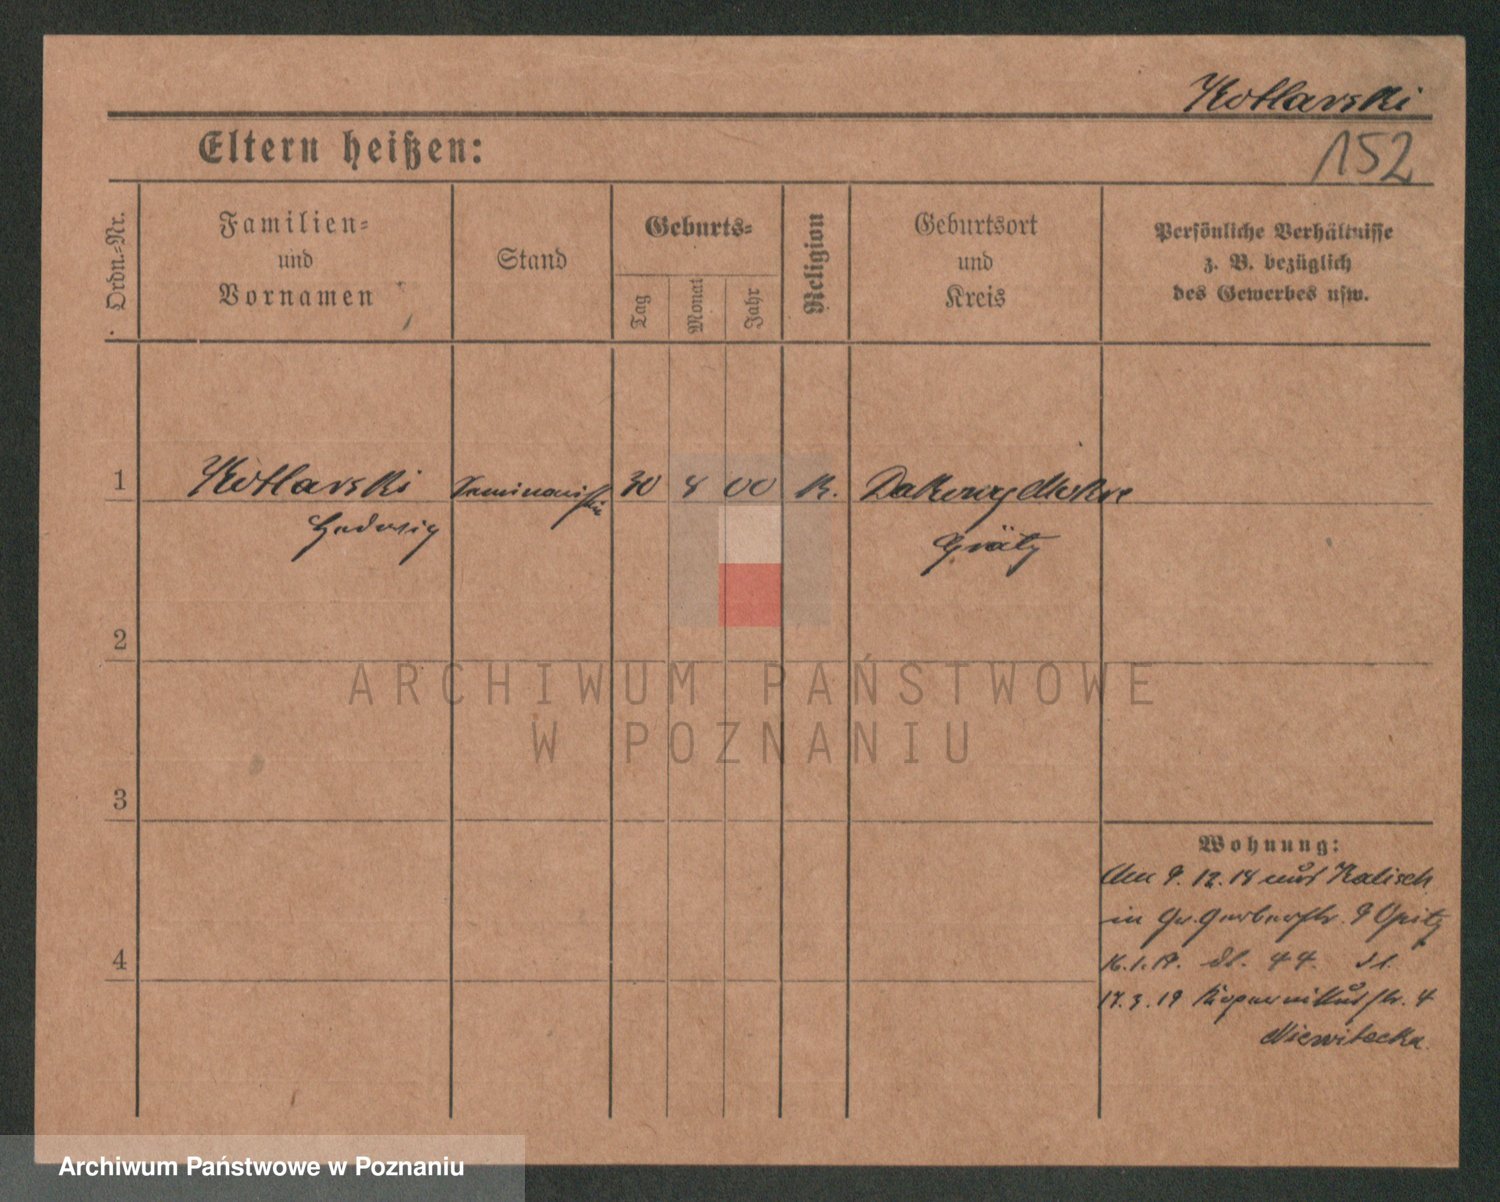 Kotlarski
152
Eltern heißen:
Ordn.-Nr.
Familien-
und
Vornamen
Stand
Geburts-
Tag
Monat
Jahr
Religion
Geburtsort
und
Kreis
Persönliche Verhältnisse
z. B. bezüglich
des Gewerbes usw.
1
Kotlarski
Hedwig
Seminaristin
30
8
00
K.
Dakowy Mokre
Grätz
2
3
4
ARCHIWUM PAŃSTWOWE
W POZNANIU
Wohnung:
Am 9. 12. 18 aus Kalisch
in Gr. Gerberstr. 9 Opitz
16.1.19. 44.
17.3.19 Kopernikusstr. 4
Niewitecka.
Archiwum Państwowe w Poznaniu